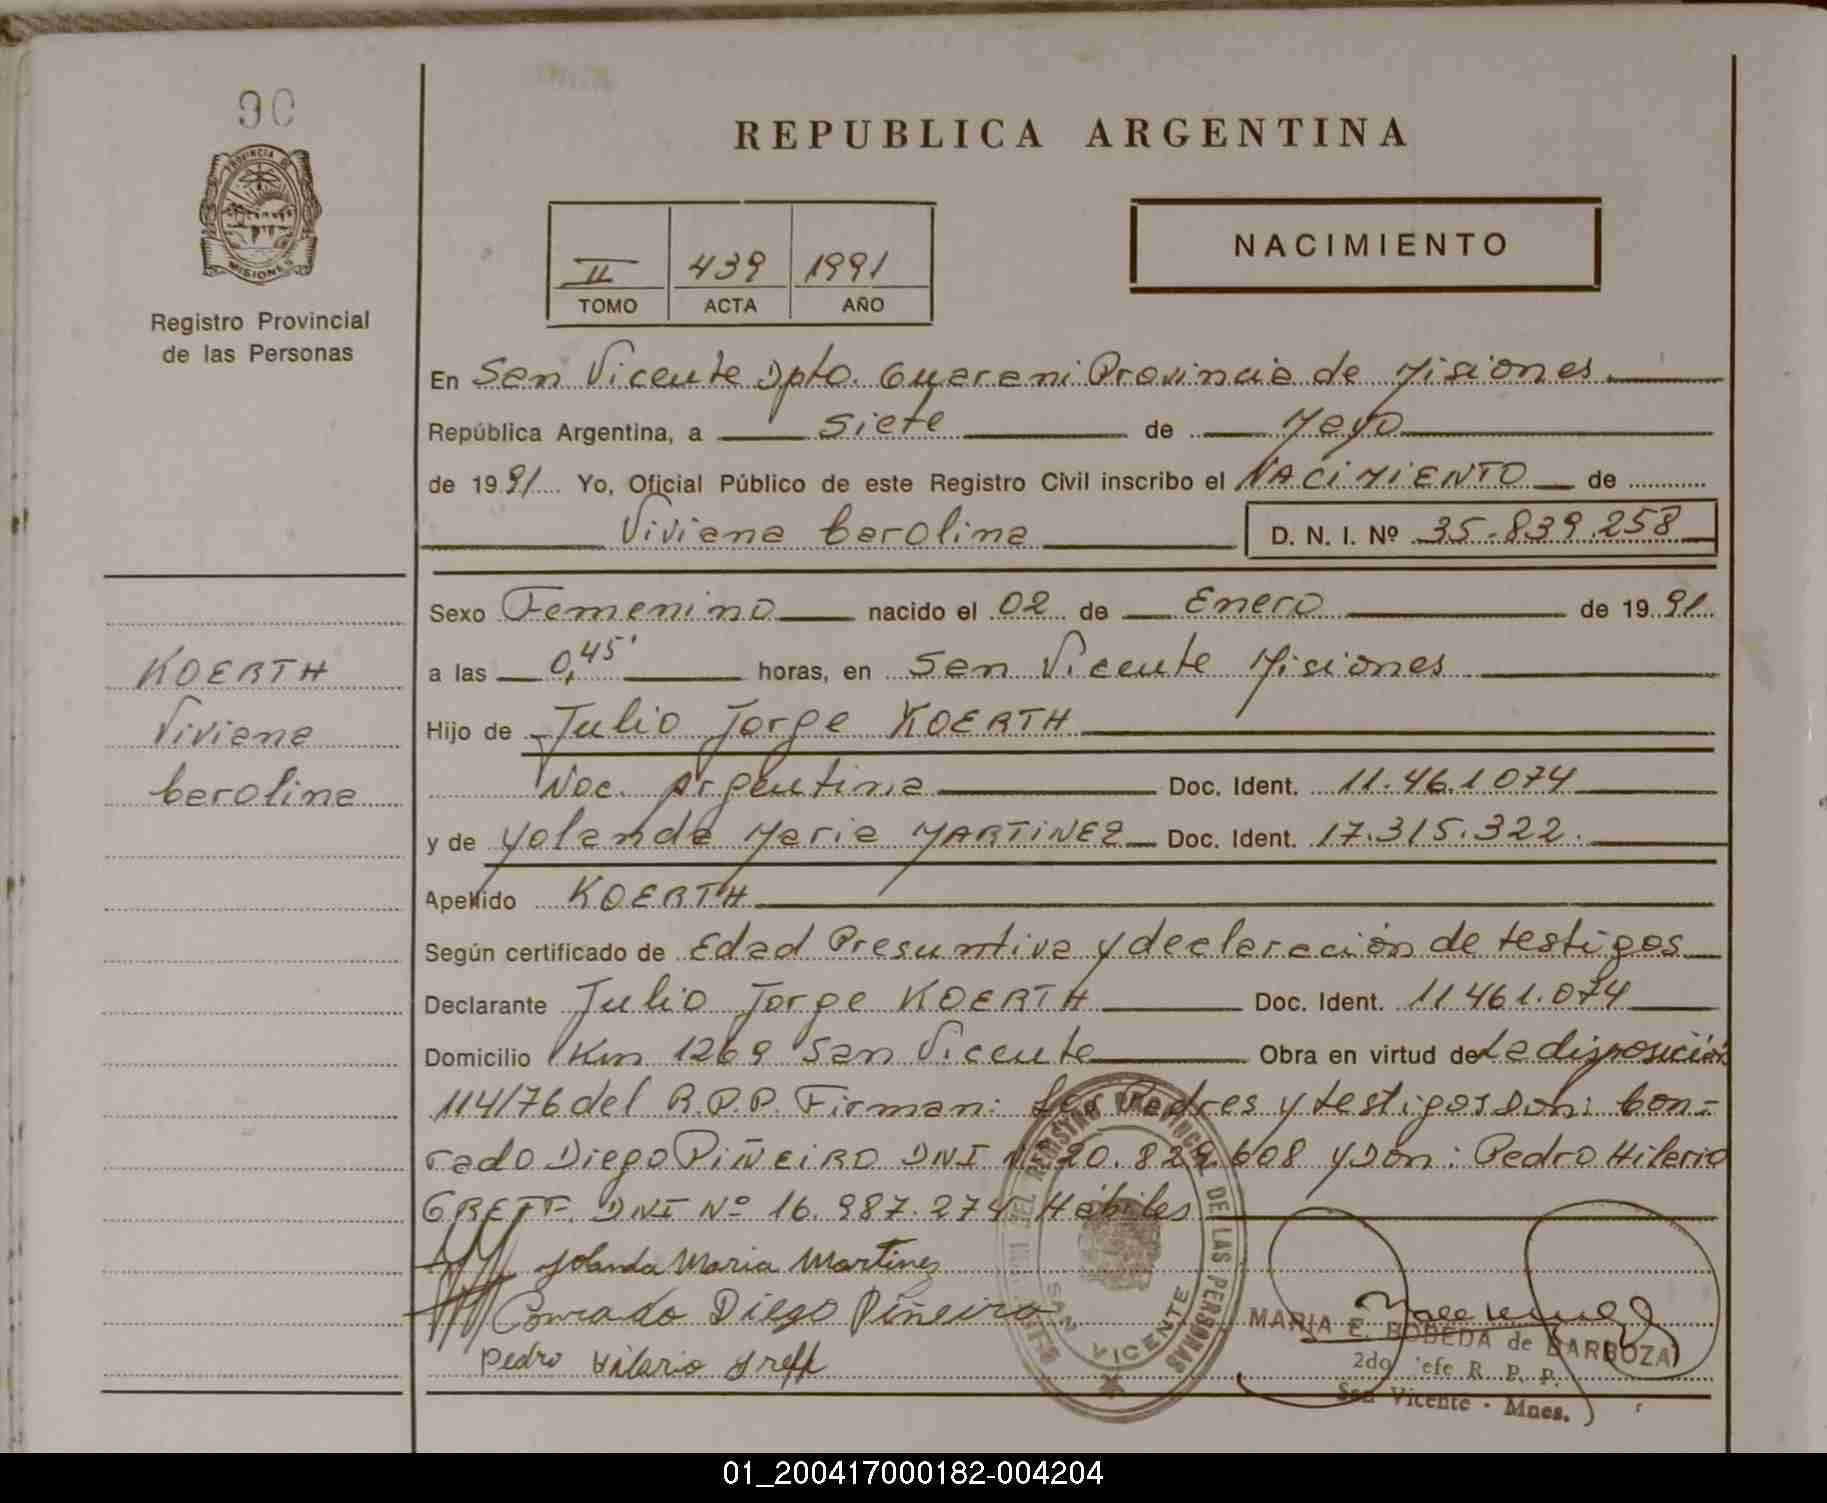 90
PROVINCIA DE
MISIONES
Registro Provincial
de las Personas
KOERTH
Viviana
Carolina
REPUBLICA ARGENTINA
II 439 1991
TOMO ACTA AÑO
NACIMIENTO
En San Vicente Dpto. Guarani Provincia de Misiones
República Argentina, a siete de Mayo
de 1991 Yo, Oficial Público de este Registro Civil inscribo el NACIMIENTO de
Viviana Carolina D. N. I. Nº 35.839.258
Sexo Femenino nacido el 02 de Enero de 1991
a las 0,45' horas, en San Vicente Misiones
Hijo de Julio Jorge KOERTH
Nac. Argentina Doc. Ident. 11.461.074
y de Yolanda Maria MARTINEZ Doc. Ident. 17.315.322.
Apellido KOERTH
Según certificado de Edad Presuntiva y declaración de testigos
Declarante Julio Jorge KOERTH Doc. Ident. 11.461.074
Domicilio Km 1269 San Vicente Obra en virtud de La disposición
114/76 del R.P.P. Firman: Los Padres y testigos Don: Con-
rado Diego PIÑEIRO DNI Nº 20.829.608 y Don: Pedro Hilario
GREFF. DNI Nº 16.987.274 Hábiles
Yolanda Maria Martinez
Conrado Diego Piñeiro
Pedro Hilario Greff
DE LAS PERSONAS
SAN VICENTE
MARIA E. BOBEDA de BARBOZA
2do Jefe R. P. P.
San Vicente - Mnes.
01_200417000182-004204